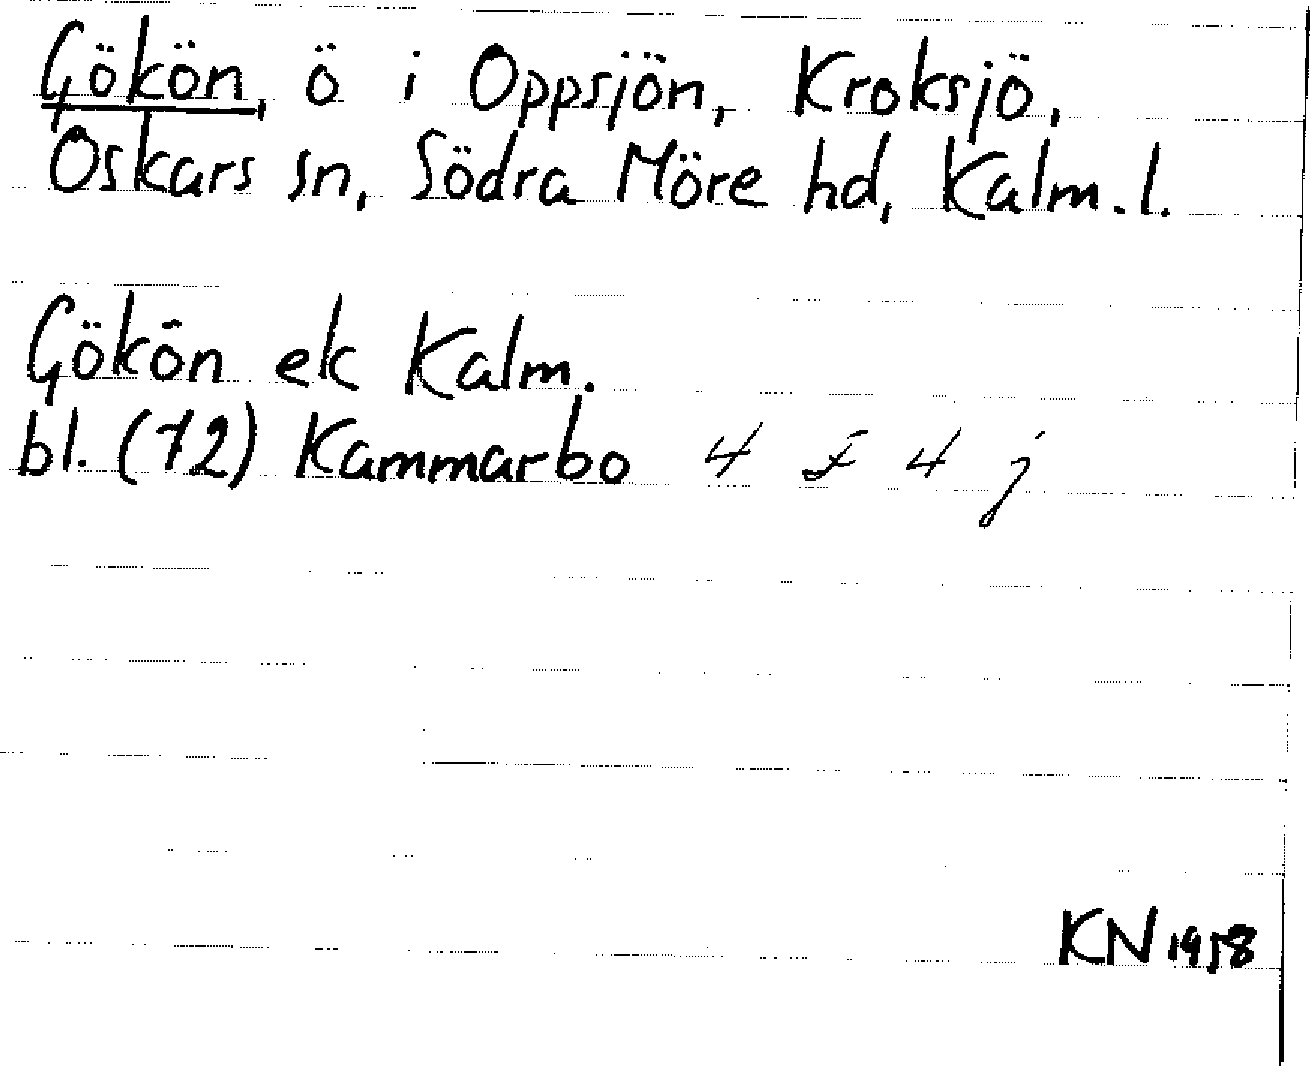 Gökön, ö i Oppsjön, Kroksjö,
Oskars sn, Södra Möre hd, Kalm. l.
Gökön ek Kalm.
bl. (72) Kammarbo 4 F 4 j
KN 1958